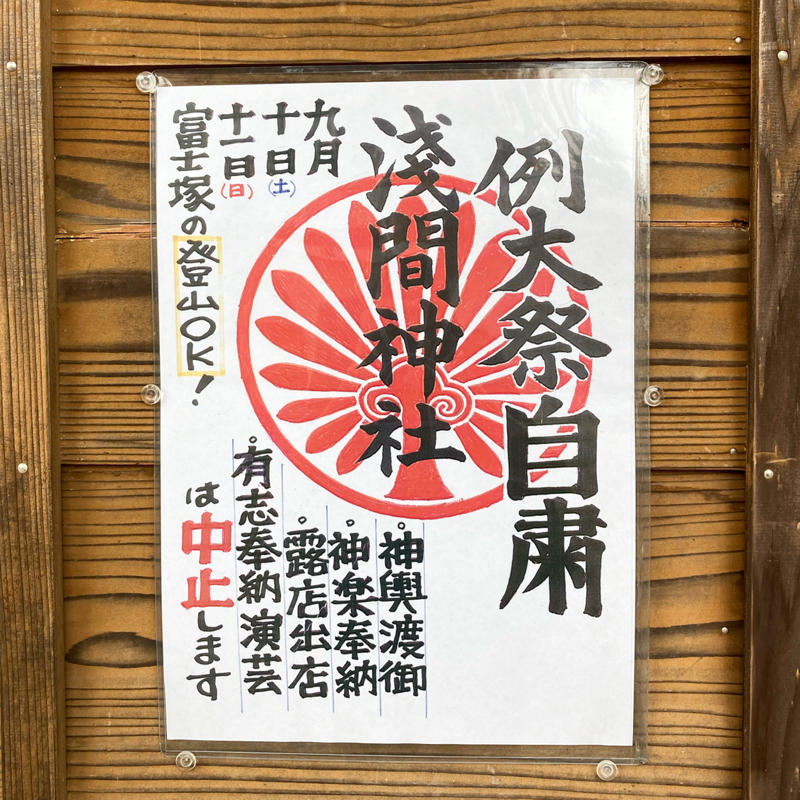 例大祭自粛
浅間神社
九月
十日(土)
十一日(日)
富士塚の登山OK!
・神輿渡御
・神楽奉納
・露店出店
・有志奉納演芸
は中止します